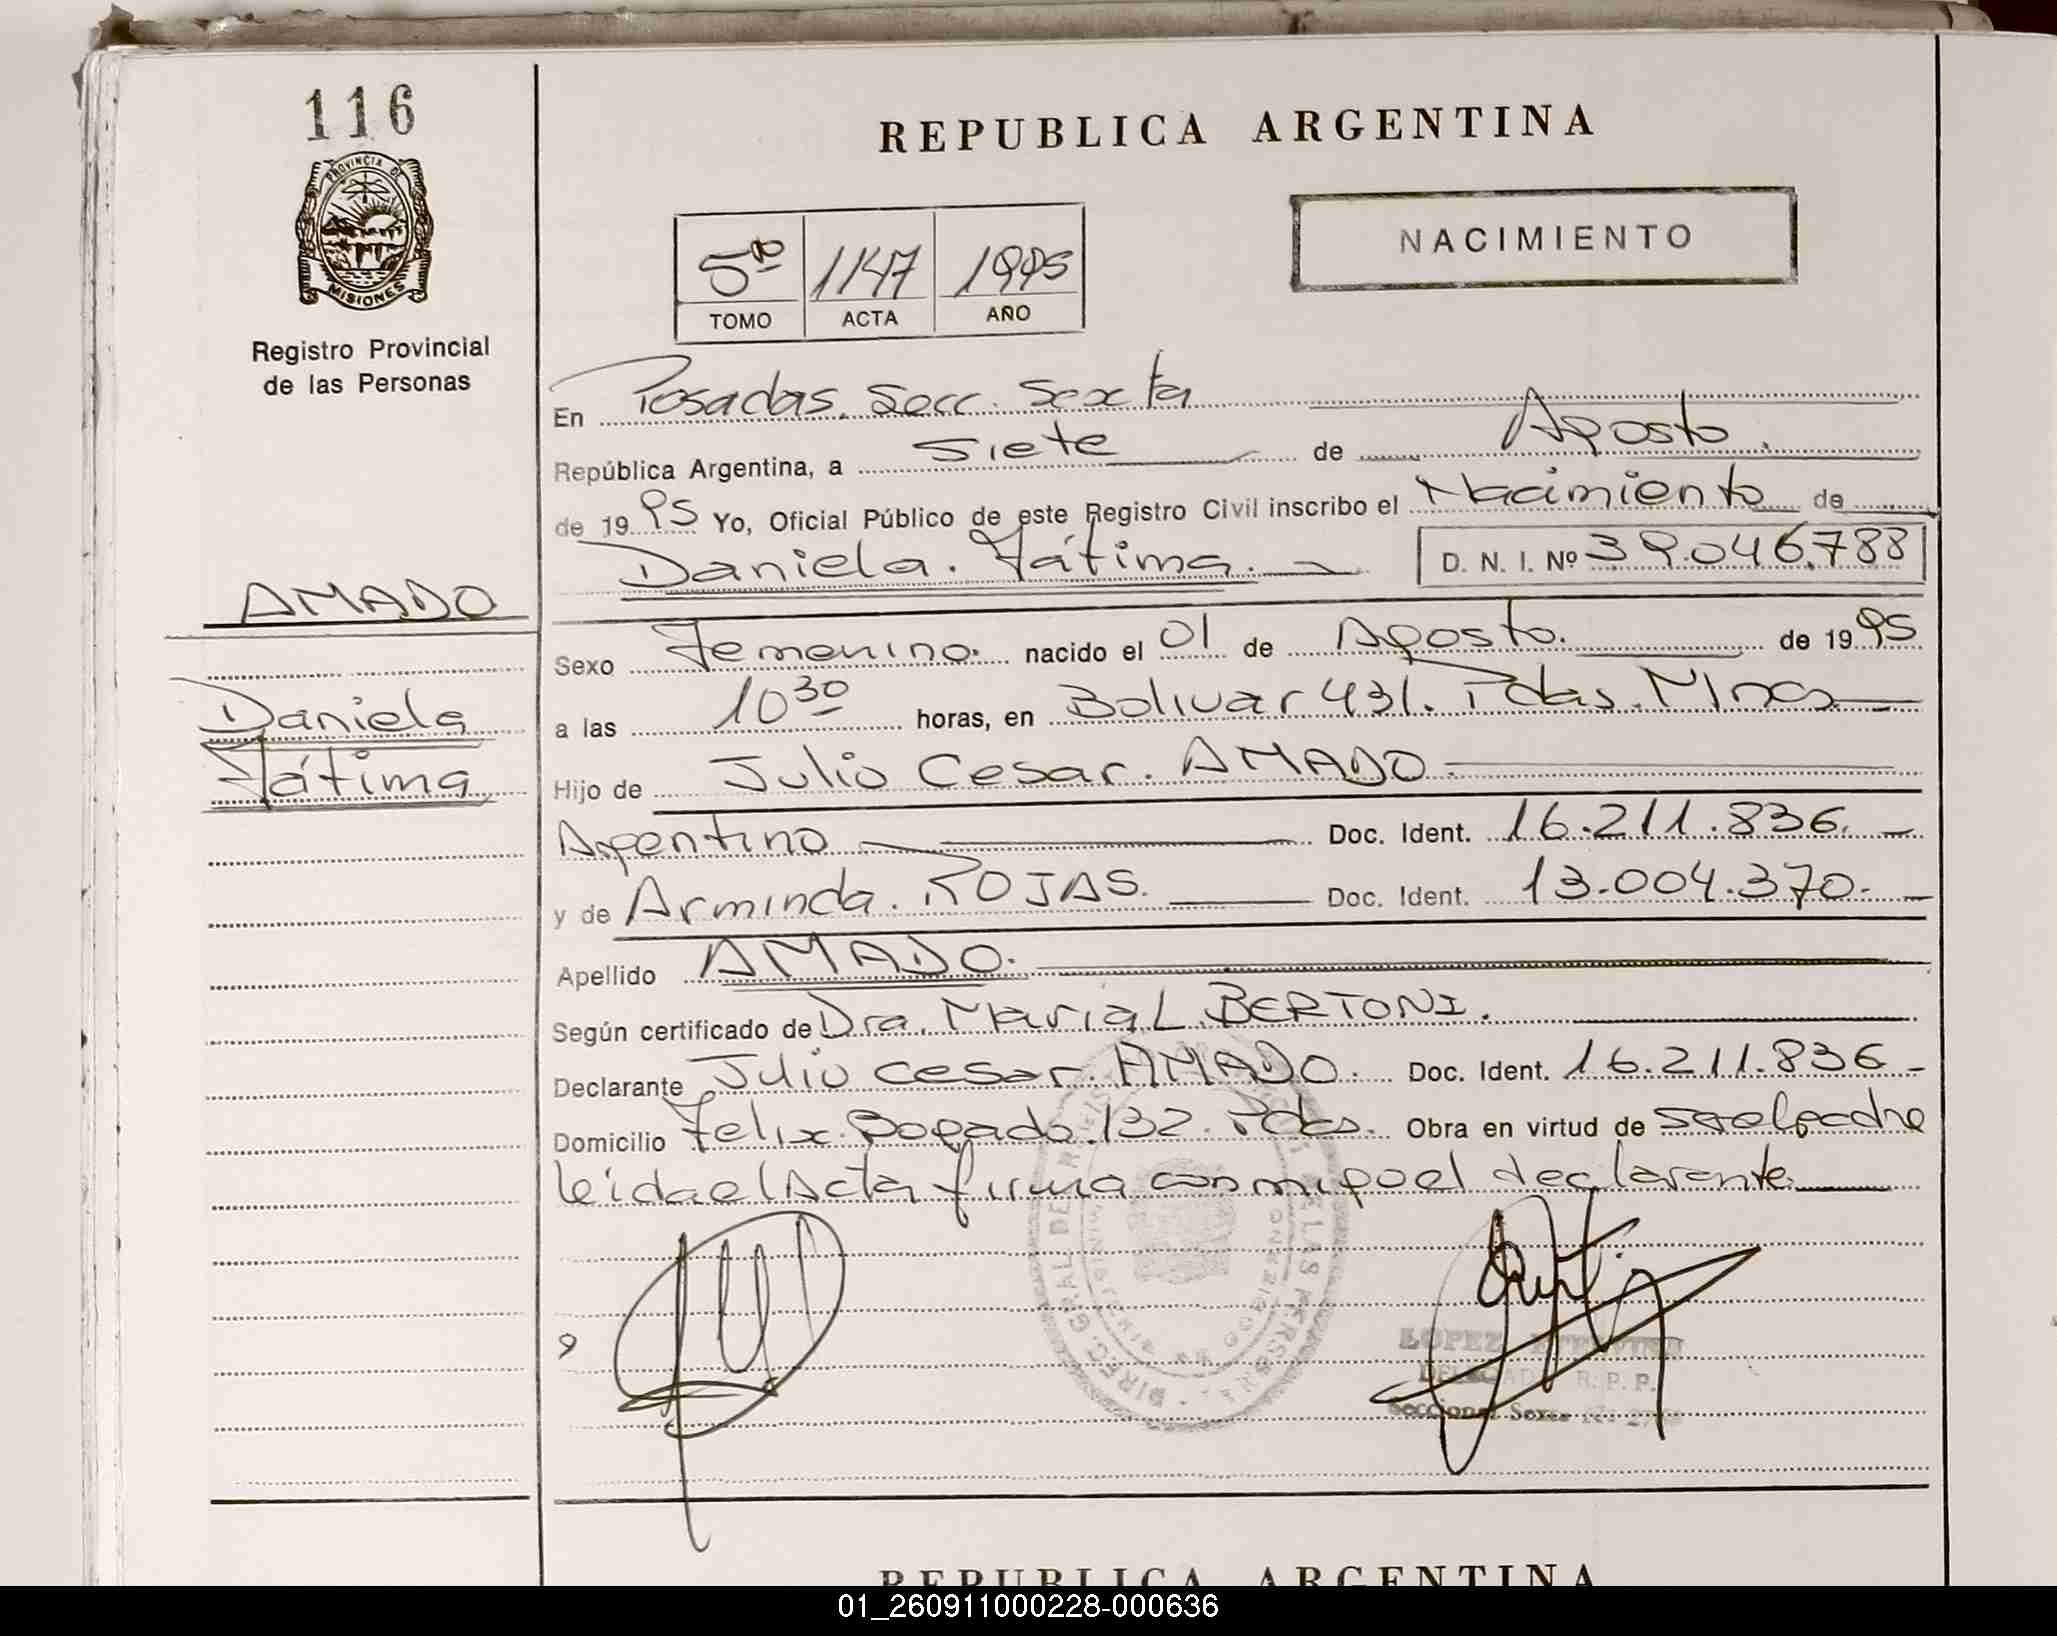 116
REPUBLICA ARGENTINA
PROVINCIA DE
MISIONES
NACIMIENTO
5º 1147 1995
TOMO ACTA AÑO
Registro Provincial
de las Personas
En Posadas. Secc. Sexta
República Argentina, a Siete de Agosto.
de 1995 Yo, Oficial Público de este Registro Civil inscribo el Nacimiento de
Daniela. Fátima. D. N. I. Nº 39.046.788
AMADO
Sexo Femenino. nacido el 01 de Agosto. de 1995
Daniela
a las 10 30 horas, en Bolivar 431. Pdas. Mnes
Fátima
Hijo de Julio Cesar. AMADO.
Argentino Doc. Ident. 16.211.836.
y de Arminda. ROJAS. Doc. Ident. 13.004.370.
Apellido AMADO.
Según certificado de Dra. Maria L. BERTONI.
Declarante Julio Cesar. AMADO. Doc. Ident. 16.211.836
Domicilio Felix. Bogado. 132. Pdas. Obra en virtud de ser el padre
leida el Acta firma con migo el declarante.
DIREC. GRAL DE REGIS DE LAS PERSONAS
LOPEZ
DELEGADA R. P. P.
Seccional Sexta
REPUBLICA ARGENTINA
01_260911000228-000636